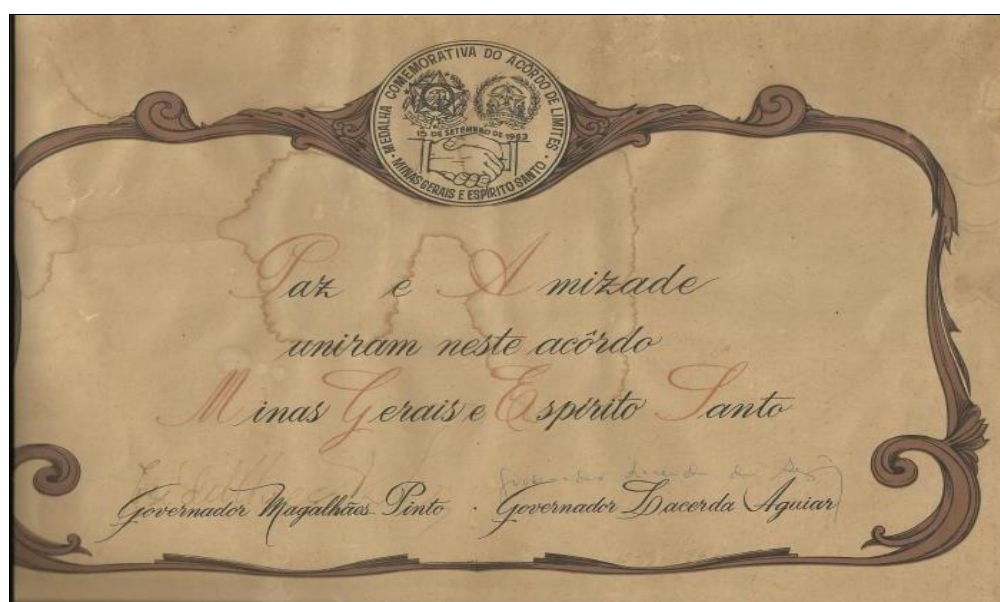 MEDALHA COMEMORATIVA DO ACÔRDO DE LIMITES
15 DE SETEMBRO DE 1963
MINAS GERAIS E ESPÍRITO SANTO
Paz e Amizade
uniram neste acôrdo
Minas Gerais e Espírito Santo
Governador Magalhães Pinto · Governador Lacerda Aguiar